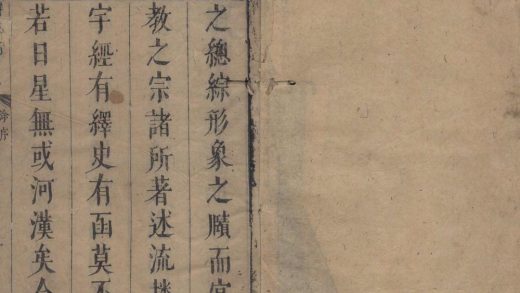 之總綜形象之賾而
教之宗諸所著述流
宇經有繹史有函莫
若日星無或河漢矣